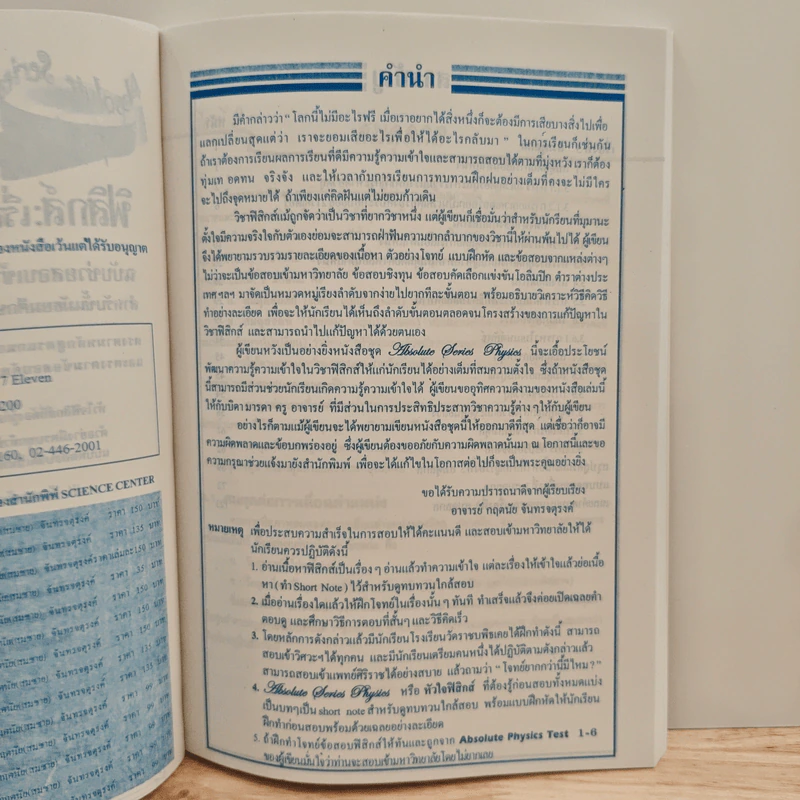 ฟิสิกส์:เรื่
องหนังสือเว้นแต่ได้รับอนุญาต
7 Eleven
200
160, 02-446-2001
องสำนักพิพ์ SCIENCE CENTER
คำนำ
มีคำกล่าวว่า " โลกนี้ไม่มีอะไรฟรี เมื่อเราอยากได้สิ่งหนึ่งก็จะต้องมีการเสียบางสิ่งไปเพื่อ
แลกเปลี่ยนสุดแต่ว่า เราจะยอมเสียอะไรเพื่อให้ได้อะไรกลับมา " ในการเรียนก็เช่นกัน
ถ้าเราต้องการเรียนผลการเรียนที่ดีมีความรู้ความเข้าใจและสามารถสอบได้ตามที่มุ่งหวัง เราก็ต้อง
ทุ่มเท อดทน จริงจัง และให้เวลากับการเรียนการทบทวนฝึกฝนอย่างเต็มที่คงจะไม่มีใคร
จะไปถึงจุดหมายได้ ถ้าเพียงแค่คิดฝันแต่ไม่ยอมก้าวเดิน
วิชาฟิสิกส์แม้ถูกจัดว่าเป็นวิชาที่ยากวิชาหนึ่ง แต่ผู้เขียนก็เชื่อมั่นว่าสำหรับนักเรียนที่มุมานะ
ตั้งใจมีความจริงใจกับตัวเองย่อมจะสามารถฝ่าฟันความยากลำบากของวิชานี้ให้ผ่านพ้นไปได้ ผู้เขียน
จึงได้พยายามรวบรวมรายละเอียดของเนื้อหา ตัวอย่างโจทย์ แบบฝึกหัด และข้อสอบจากแหล่งต่างๆ
ไม่ว่าจะเป็นข้อสอบเข้ามหาวิทยาลัย ข้อสอบชิงทุน ข้อสอบคัดเลือกแข่งขันโอลิมปิก ตำราต่างประ
เทศ ฯลฯ มาจัดเป็นหมวดหมู่เรียงลำดับจากง่ายไปยากทีละขั้นตอน พร้อมอธิบายวิเคราะห์วิธีคิดวิธี
ทำอย่างละเอียด เพื่อจะให้นักเรียนได้เห็นถึงลำดับขั้นตอนตลอดจนโครงสร้างของการแก้ปัญหาใน
วิชาฟิสิกส์ และสามารถนำไปแก้ปัญหาได้ด้วยตนเอง
ผู้เขียนหวังเป็นอย่างยิ่งหนังสือชุด Absolute Series Physics นี้จะเอื้อประโยชน์
พัฒนาความรู้ความเข้าใจในวิชาฟิสิกส์ให้แก่นักเรียนได้อย่างเต็มที่สมความตั้งใจ ซึ่งถ้าหนังสือชุด
นี้สามารถมีส่วนช่วยนักเรียนเกิดความรู้ความเข้าใจได้ ผู้เขียนขออุทิศความดีงามของหนังสือเล่มนี้
ให้กับบิดา มารดา ครู อาจารย์ ที่มีส่วนในการประสิทธิประสาทวิชาความรู้ต่าง ๆ ให้กับผู้เขียน
อย่างไรก็ตามแม้ผู้เขียนจะได้พยายามเขียนหนังสือชุดนี้ให้ออกมาดีที่สุด แต่เชื่อว่าก็อาจมี
ความผิดพลาดและข้อบกพร่องอยู่ ซึ่งผู้เขียนต้องขออภัยกับความผิดพลาดนั้นมา ณ โอกาสนี้และขอ
ความกรุณาช่วยแจ้งมายังสำนักพิมพ์ เพื่อจะได้แก้ไขในโอกาสต่อไปก็จะเป็นพระคุณอย่างยิ่ง
ขอได้รับความปรารถนาดีจากผู้เรียบเรียง
อาจารย์ กฤตนัย จันทรจตุรงค์
หมายเหตุ เพื่อประสบความสำเร็จในการสอบให้ได้คะแนนดี และสอบเข้ามหาวิทยาลัยให้ได้
นักเรียนควรปฏิบัติดังนี้
1. อ่านเนื้อหาฟิสิกส์เป็นเรื่อง ๆ อ่านแล้วทำความเข้าใจ แต่ละเรื่องให้เข้าใจแล้วย่อเนื้อ
หา (ทำ Short Note) ไว้สำหรับดูทบทวนใกล้สอบ
2. เมื่ออ่านเรื่องใดแล้วให้ฝึกโจทย์ในเรื่องนั้น ๆ ทันที ทำเสร็จแล้วจึงค่อยเปิดเฉลยคำ
ตอบดู และศึกษาวิธีการตอบที่สั้นๆ และวิธีคิดเร็ว
3. โดยหลักการดังกล่าวแล้วมีนักเรียนโรงเรียนวัดราชบพิธเคยได้ฝึกทำดังนี้ สามารถ
สอบเข้าวิศวะฯ ได้ทุกคน และมีนักเรียนเตรียมคนหนึ่งได้ปฏิบัติตามดังกล่าวแล้ว
สามารถสอบเข้าแพทย์ศิริราชได้อย่างสบาย แล้วถามว่า " โจทย์ยากกว่านี้มีไหม ? "
4. Absolute Series Physics หรือ หัวใจฟิสิกส์ ที่ต้องรู้ก่อนสอบทั้งหมดแบ่ง
เป็นบทๆ เป็น short note สำหรับดูทบทวนใกล้สอบ พร้อมแบบฝึกหัดให้นักเรียน
ฝึกทำก่อนสอบพร้อมด้วยเฉลยอย่างละเอียด
5. ถ้าฝึกทำโจทย์ข้อสอบฟิสิกส์ให้ทันและถูกจาก Absolute Physics Test 1-6
ของผู้เขียนมั่นใจว่าท่านจะสอบเข้ามหาวิทยาลัยโดยไม่ยากเลย